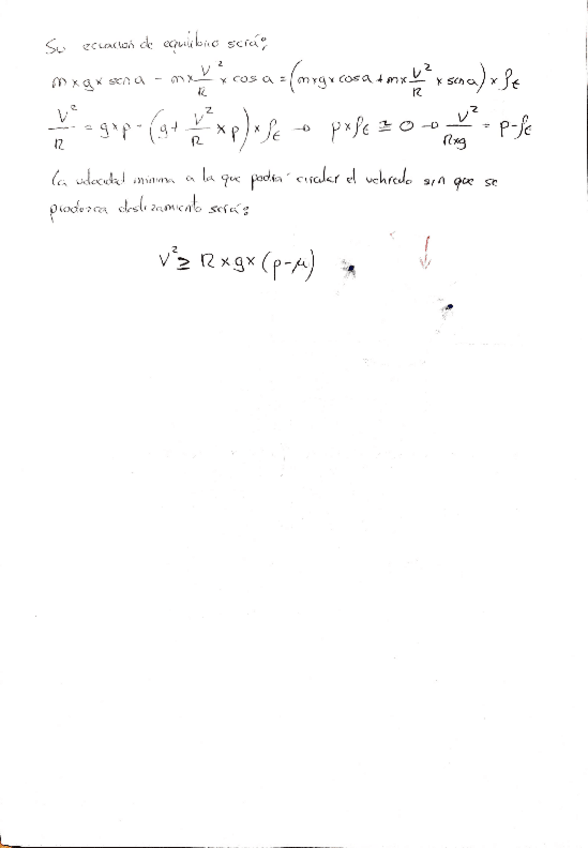 Su ecuación de equilibrio será:
m x g x sen a - m x V²/R x cos a = (m x g x cos a + m x V²/R x sen a) x ft
V²/R = g x p - (g + V²/R x p) x ft → p x ft ≅ 0 → V²/Rxg = p - ft
La velocidad mínima a la que podría circular el vehículo sin que se
produzca deslizamiento será:
V² ≥ R x g x (p - μ)